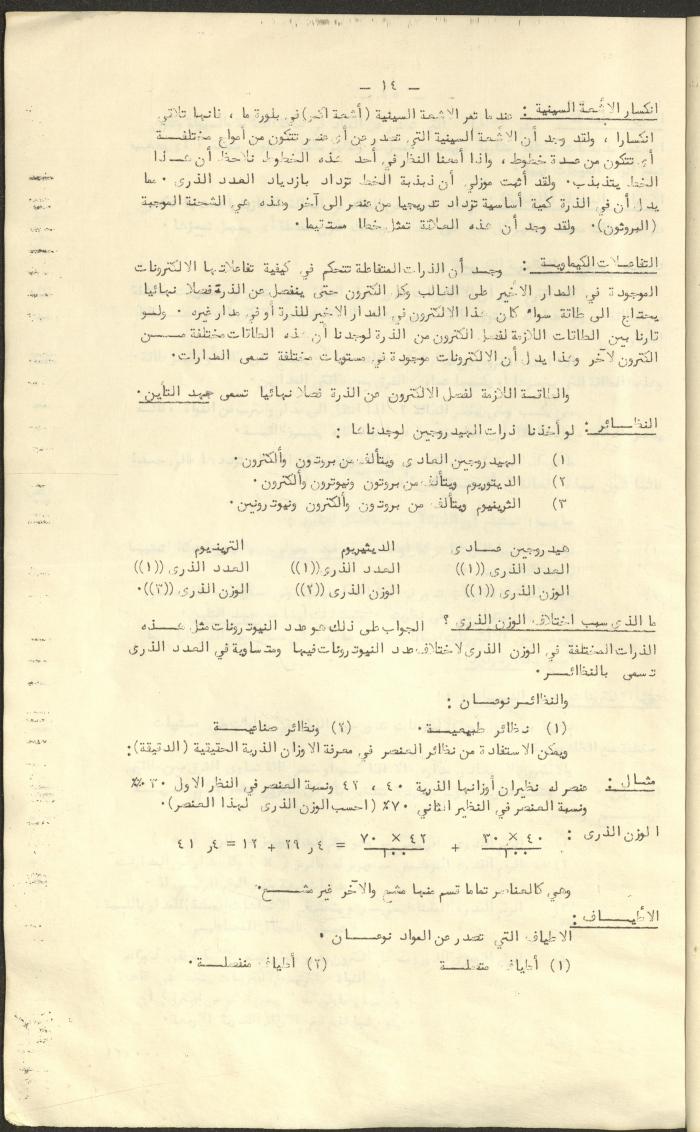 — ١٤ —
انكسار الاشعة السينية : عندما تمر الاشعة السينية (أشعة اكس) في بلورة ما ، فانها تلاقي
انكسارا ، ولقد وجد أن الاشعة السينية التي تصدر عن أي عنصر تتكون من أمواج مختلفـــة
أي تتكون من عدة خطوط ، واذا أمعنا النظر في أحد هذه الخطوط نلاحظ أن هــذا
الخط يتذبذب . ولقد أثبت موزلي أن ذبذبة الخط تزداد بازدياد العدد الذري . مما
يدل أن في الذرة كمية أساسية تزداد تدريجيا من عنصر الى آخر وهذه هي الشحنة الموجبة
(البروتون) . ولقد وجد أن هذه العلاقة تمثل خطا مستقيما .
التفاعـلات الكيماويـة : وجـد أن الذرات المتفاعلة تتحكم في كيفية تفاعلاتها الالكترونات
الموجودة في المدار الأخير على الغالب وكل الكترون حتى ينفصل عن الذرة فصلا نهائيا
يحتاج الى طاقة سواء كان هذا الالكترون في المدار الاخير للذرة أو في مدار غيره . ولـو
قارنا بين الطاقات اللازمة لفصل الكترون من الذرة لوجدنا أن هذه الطاقات مختلفة مــن
الكترون لآخر وهذا يدل أن الالكترونات موجودة في مستويات مختلفة تسمى المدارات .
والطاقـة اللازمة لفصل الالكترون عن الذرة فصلا نهائيا تسمى جهد التأين .
النظـائـر : لو أخذنا ذرات الهيدروجين لوجدناها :
١) الهيدروجين العادي ويتألف من بروتون وألكترون .
٢) الديتوريوم ويتألف من بروتون ونيوترون وألكترون .
٣) الثرينيوم ويتألف من بروتون وألكترون ونيوترونين .
هيدروجين عـــادي الديثيريوم الترينديوم
العدد الذري ((١)) العـدد الذري ((١)) العدد الذري ((١))
الوزن الذري ((١)) الوزن الذري ((٢)) الوزن الذري ((٣)) .
ما الذي سبب اختلاف الوزن الذري ؟ الجواب على ذلك هو عدد النيوترونات مثل هـــذه
الذرات المختلفة في الوزن الذري لاختلاف عدد النيوترونات فيها ومتساوية في العدد الذري
تسمى بالنظائــر .
والنظائـر نوعـان :
(١) نظائر طبيعيـة . (٢) ونظائر صناعيـة
ويمكن الاستفادة من نظائر العنصر في معرفة الاوزان الذرية الحقيقية (الدقيقة) :
مثــال : عنصر له نظيران أوزانها الذرية ٤٠ ، ٤٢ ونسبة العنصر في النظر الاول ٣٠٪
ونسبة العنصر في النظير الثاني ٧٠٪ (احسب الوزن الذري لهذا العنصر) .
الوزن الذري : ٤٠ × ٣٠ / ١٠٠ + ٤٢ × ٧٠ / ١٠٠ = ٤ر ٢٩ + ١٢ = ٤ر ٤١
وهي كالعناصر تماما قسم منها مشع والآخر غير مشــع .
الأطيــاف :
الاطياف التي تصدر عن المواد نوعـان .
(١) أطياف متصلـة (٢) أطياف منفصلـة .